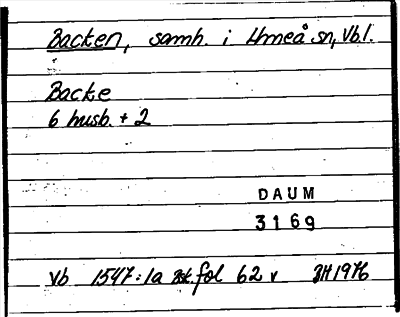 Backen, samh. i Umeå sn, Vb.l.
Backe
6 husb. + 2
DAUM
3169
Vb 1547:1a Bst. fol 62 v BH 1976